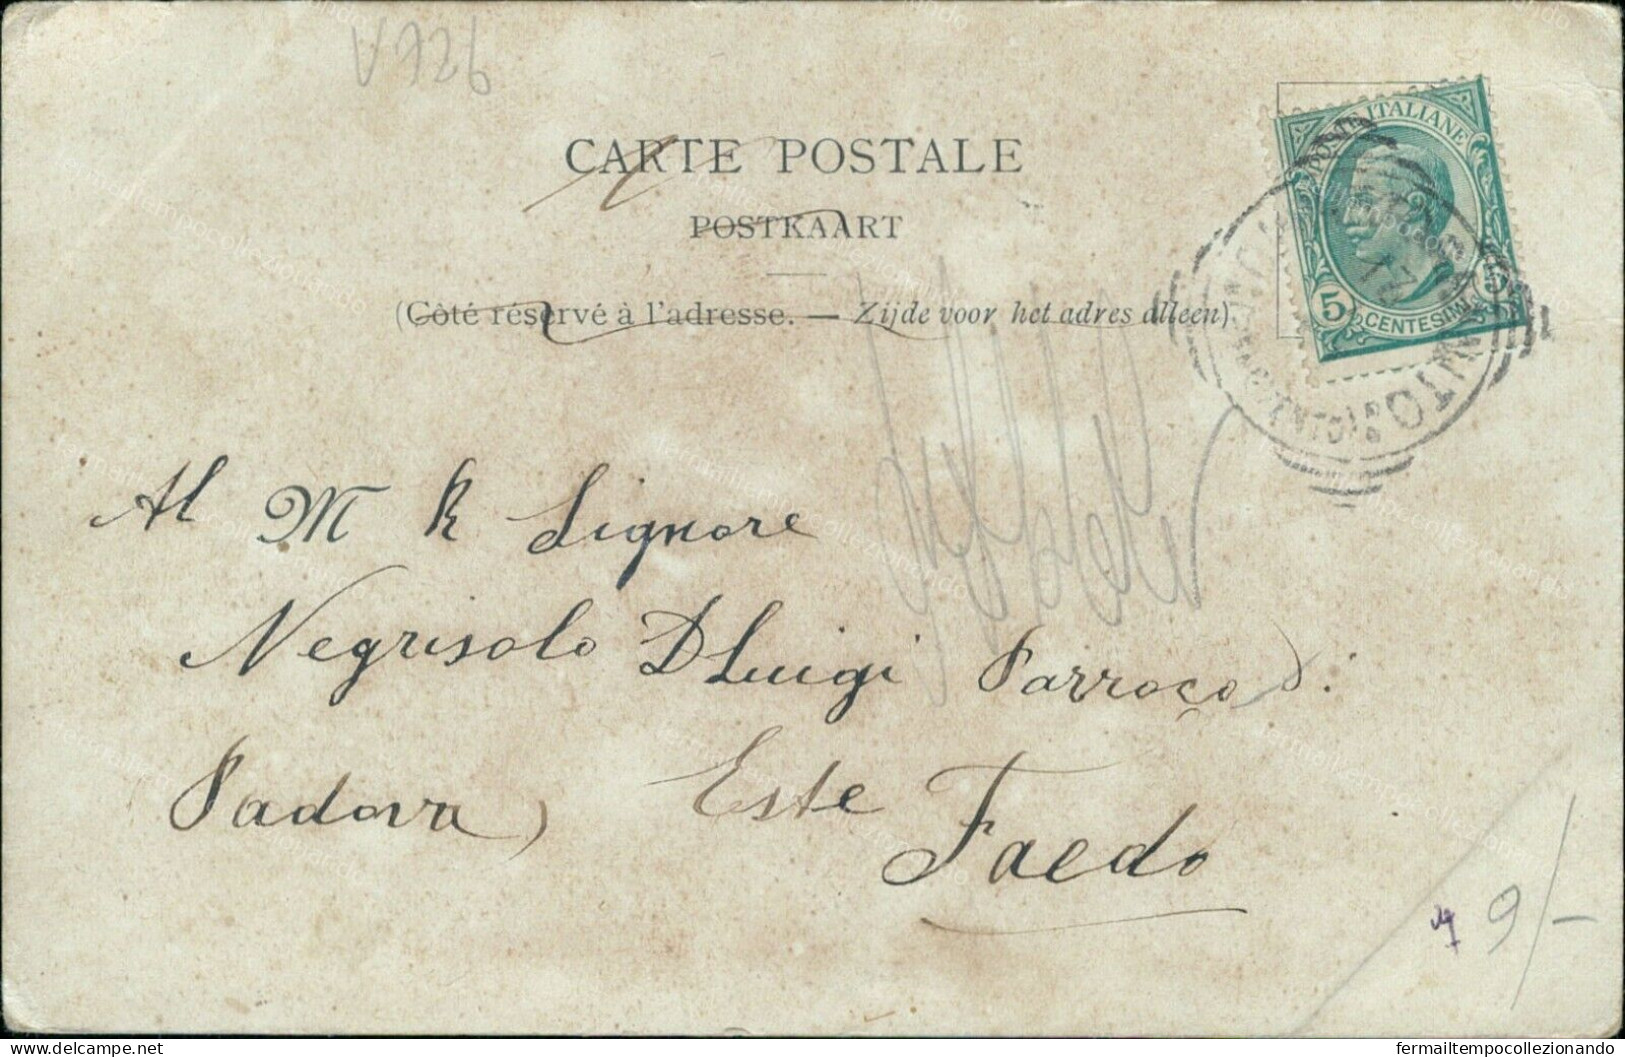 V 926
CARTE POSTALE
POSTKAART
(Côté réservé à l'adresse. — Zijde voor het adres alleen)
POSTE ITALIANE
5 CENTESIMI 5
Al M R Signore
Negrisolo D Luigi Parroco di
Padova) Este
Faedo
9/-
www.delcampe.net
fermailtempocollezionando